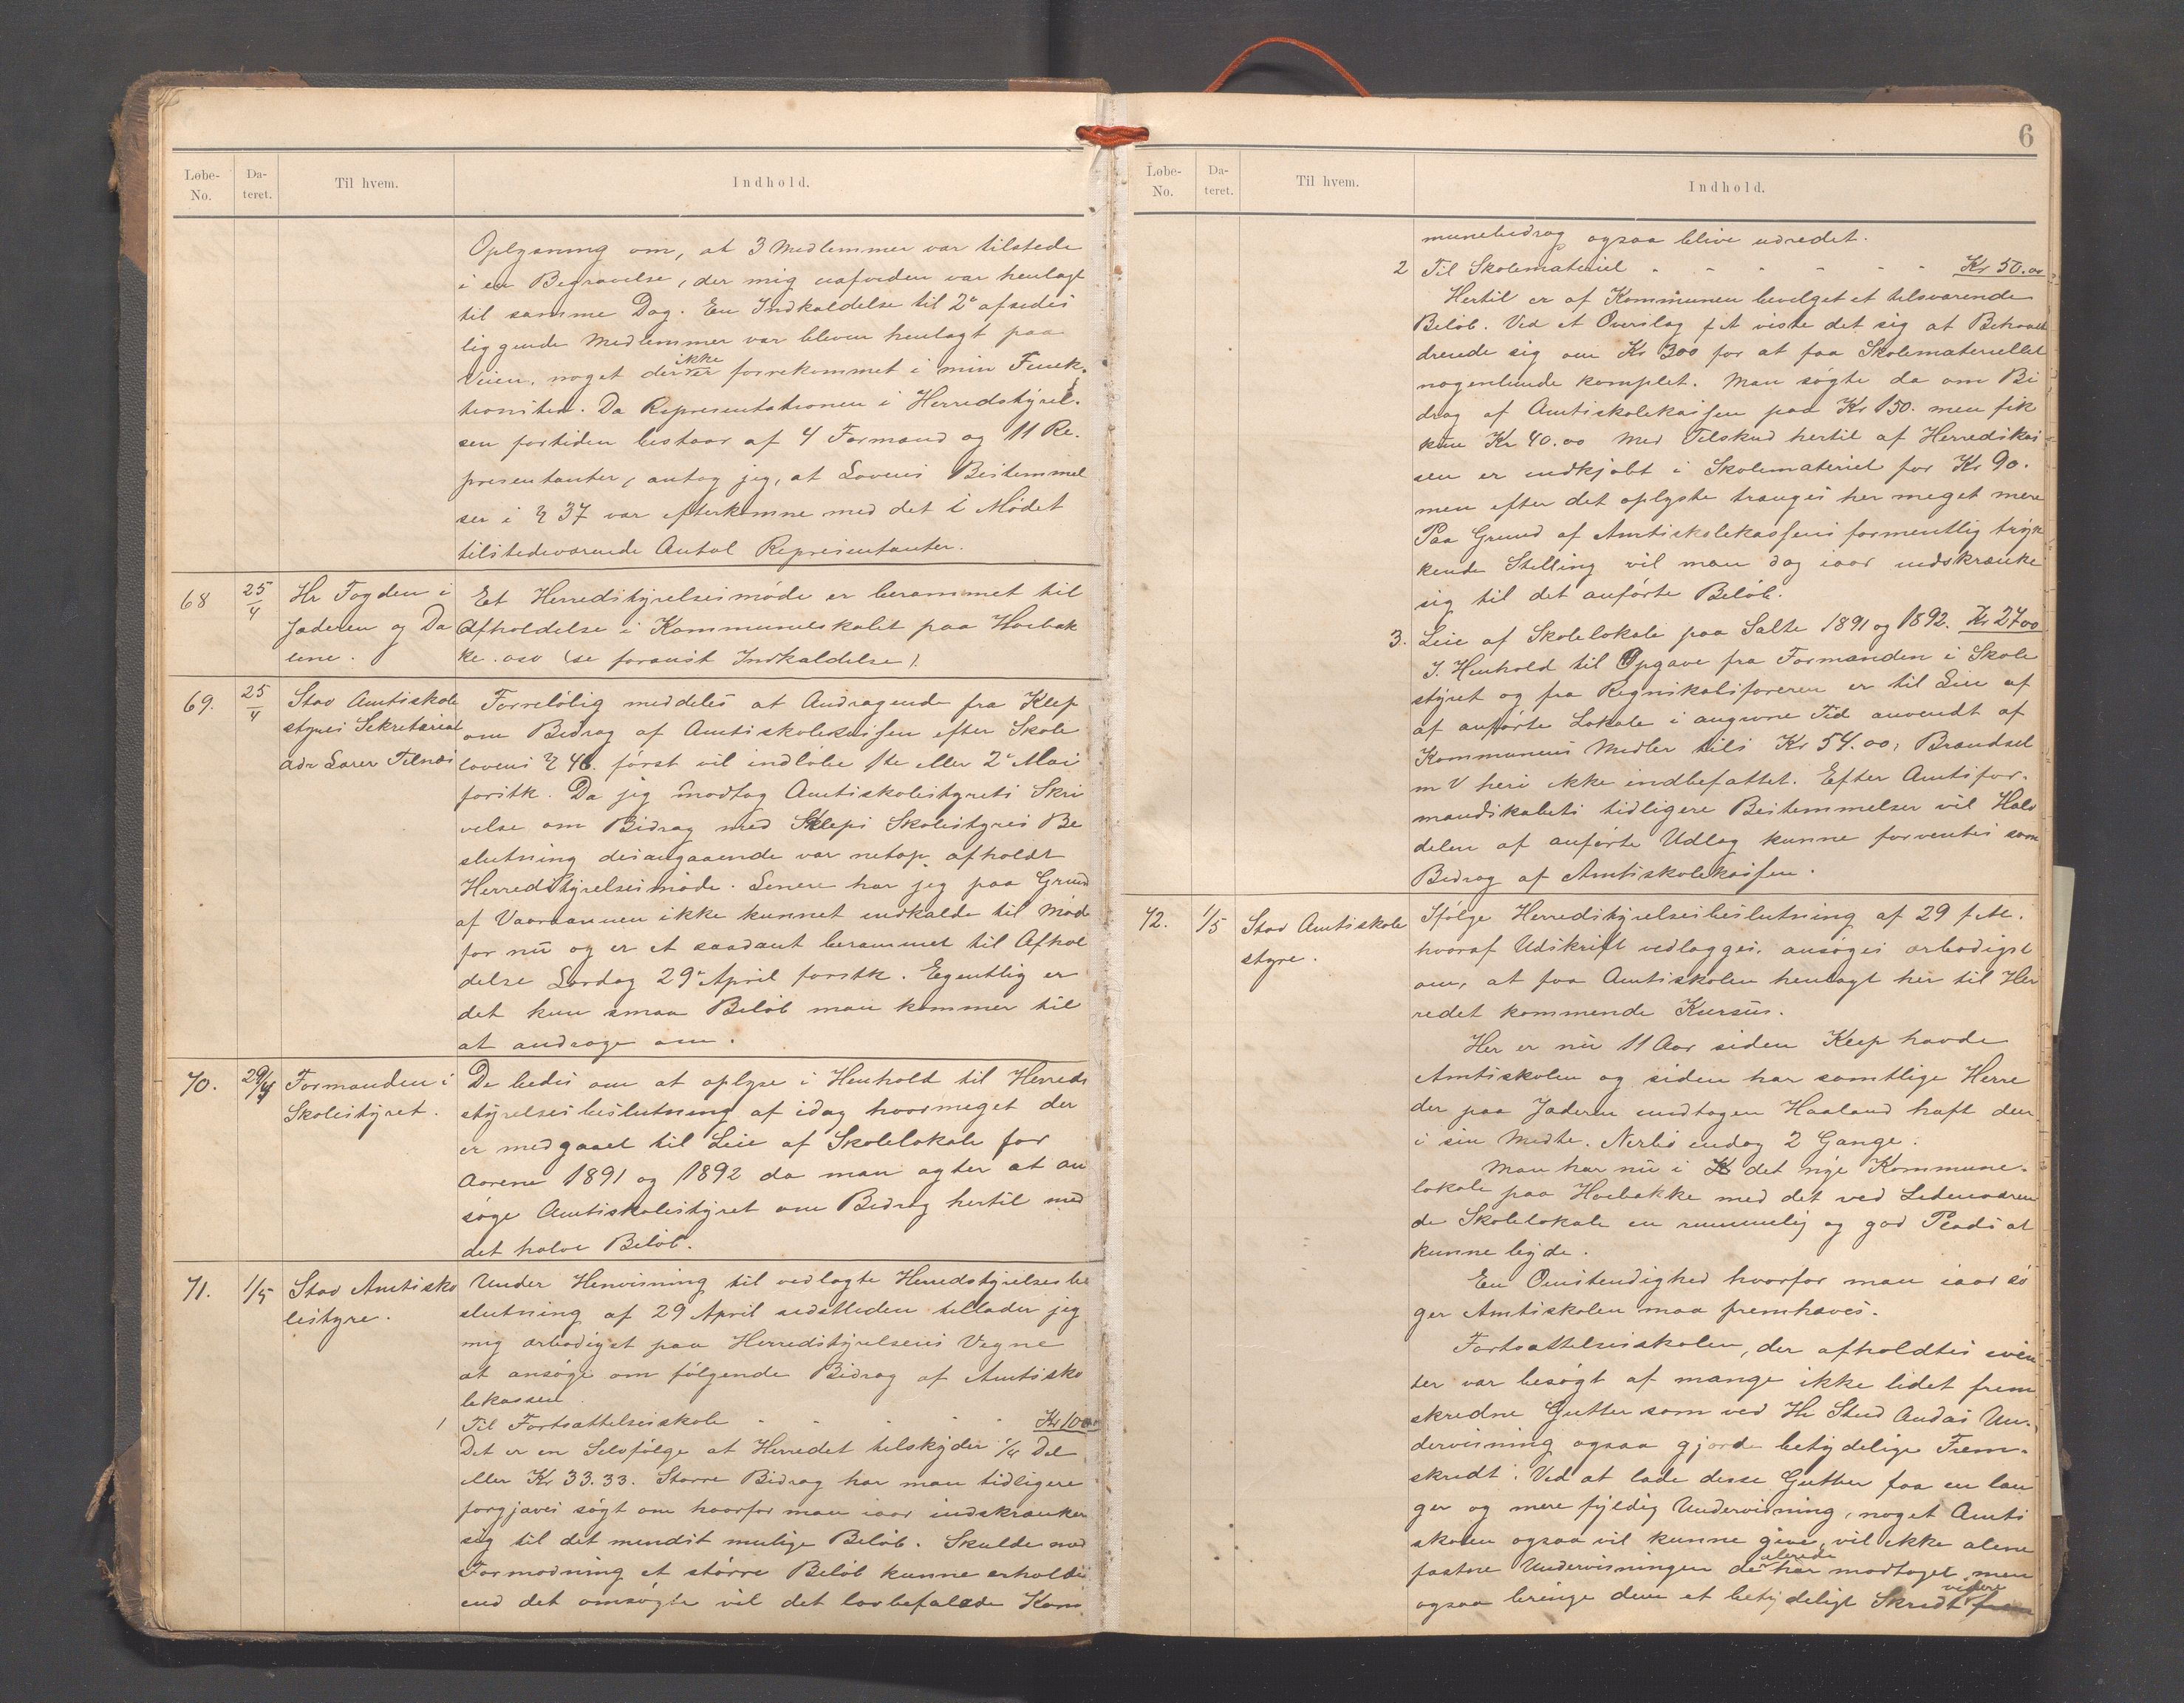 Løbe-No. Da-teret. Til hvem. Indhold.
Oplysning om, at 3 Medlemmer var tilstede
i en Begravelse, der mig uafvidende var henlagt
til samme Dag. En Indkaldelse til 2de afsides
liggende Medlemmer var bleven henlagt paa
Veien, noget der ikke er forrekommet i min Funk-
tionstid. Da Representationen i Herredstyrel-
sen fortiden bestaar af 4 Formænd og 11 Re-
presentanter, antog jeg, at Lovens Bestemmel
ser i § 37 var efterkomne med det i Mødet
tilstedeværende Antal Representanter.
68 25/4 Hr Fogden i Et Herredstyrelsesmøde er berammet til
Jæderen og Da Afholdelse i Kommunelokalet paa Hoebak
lene. ke. osv (se foranst Indkaldelse).
69. 25/4 Stav Amtsskole Forreløbig meddeles at Andragende fra Klep
styres Sekretariat om Bidrag af Amtsskolekassen efter Skole
adr Lærer Tilnæs lovens § 46. først vil indløbe 1ste eller 2den Mai
førstk. Da jeg modtog Amtsskolestyrets Skri
velse om Bidrag med Kleps Skolestyres Be
slutning desangaaende var netop afholdt
Herredstyrelsesmøde. Senere har jeg paa Grund
af Vaaraannen ikke kunnet indkalde til Møde
før nu og er et saadant berammet til Afhol
delse Lørdag 29de April førstk. Egentlig er
det kun smaa Beløb man kommer til
at andrage om.
70. 29/4 Formanden i De bedes om at oplyse i Henhold til Herreds
Skolestyret. styrelsesbeslutning af idag hvormeget der
er medgaaet til Leie af Skolelokale for
Aarene 1891 og 1892 da man agter at an
søge Amtsskolestyret om Bidrag hertil med
det halve Beløb.
71. 1/5 Stav Amtssko Under Henvisning til vedlagte Herredstyrelsesbe
lestyre. slutning af 29 April sidstleden tillader jeg
mig ærbødigst paa Herredstyrelsens Vegne
at ansøge om følgende Bidrag af Amtssko
lekassen
1 Til Fortsættelsesskole - - - - - Kr 100.00
Det er en Selvfølge at Herredet tilskyder 1/4 Del
eller Kr 33.33. Større Bidrag har man tidligere
forgjæves søgt om hvorfor man iaar indskrænker
sig til det mindst mulige Beløb. Skulde mod
Formodning et større Beløb kunne erholdes
end det omsøgte vil det lovbefalede Kom
6
Løbe-No. Da-teret. Til hvem. Indhold.
munebidrag ogsaa blive udredet.
2 Til Skolemateriel - - - - - - Kr 50.00
Hertil er af Kommunen bevilget et tilsvarende
Beløb. Ved et Overslag f A viste det sig at Behovet
dreiede sig om Kr 300 for at faa Skolemateriellet
nogenlunde komplet. Man søgte da om Bi
drag af Amtsskolekassen paa Kr 150. men fik
kun Kr 40.00 Med Tilskud hertil af Herredskas
sen er indkjøbt i Skolemateriel for Kr 90.
men efter det oplyste tranges her meget mere
Paa Grund af Amtsskolekassens formentlig tryk
kende Stilling vil man dog iaar indskrænke
sig til det anførte Beløb.
3. Leie af Skolelokale paa Salte 1891 og 1892. Kr 27 00
I Henhold til Opgave fra Formanden i Skole
styret og fra Regnskabsføreren er til Leie af
af anførte Lokale i angivne Tid anvendt af
Kommunens Midler tils Kr 54.00, Brændsel
m V heri ikke indbefattet. Efter Amtsfor-
mandskabets tidligere Bestemmelser vil Halv
delen af anførte Udlæg kunne forventes som
Bidrag af Amtsskolekassen.
72. 1/5 Stav Amtsskole Ifølge Herredstyrelsesbeslutning af 29 f. M.
styre. hvoraf Udskrift vedlægges, ansøges ærbødigst
om, at faa Amtsskolen henlagt her til Her
redet kommende Kursus.
Her er nu 11 Aar siden Klep havde
Amtsskolen og siden har samtlige Herre
der paa Jæderen undtagen Haaland haft den
i sin Midte. Nerbø endog 2 Gange.
Man har nu i det nye Kommune-
lokale paa Hoebakke med det ved Sidenværen
de Skolelokale en rummelig og god Plads at
kunne byde.
En Omstendighed hvorfor man iaar sø
ger Amtsskolen maa fremhæves.
Fortsættelsesskolen, der afholdtes ivin
ter var besøgt af mange ikke lidet frem
skredne Gutter som ved Hr Stud Andås Un-
dervisning ogsaa gjorde betydelige Frem-
skridt. Ved at lade disse Gutter faa en læn
ger og mere fyldig Undervisning, noget Amts
skolen ogsaa vil kunne give, vil ikke alene
fastne Undervisningen de allerede har modtaget, men
ogsaa bringe dem et betydeligt Skridt videre frem